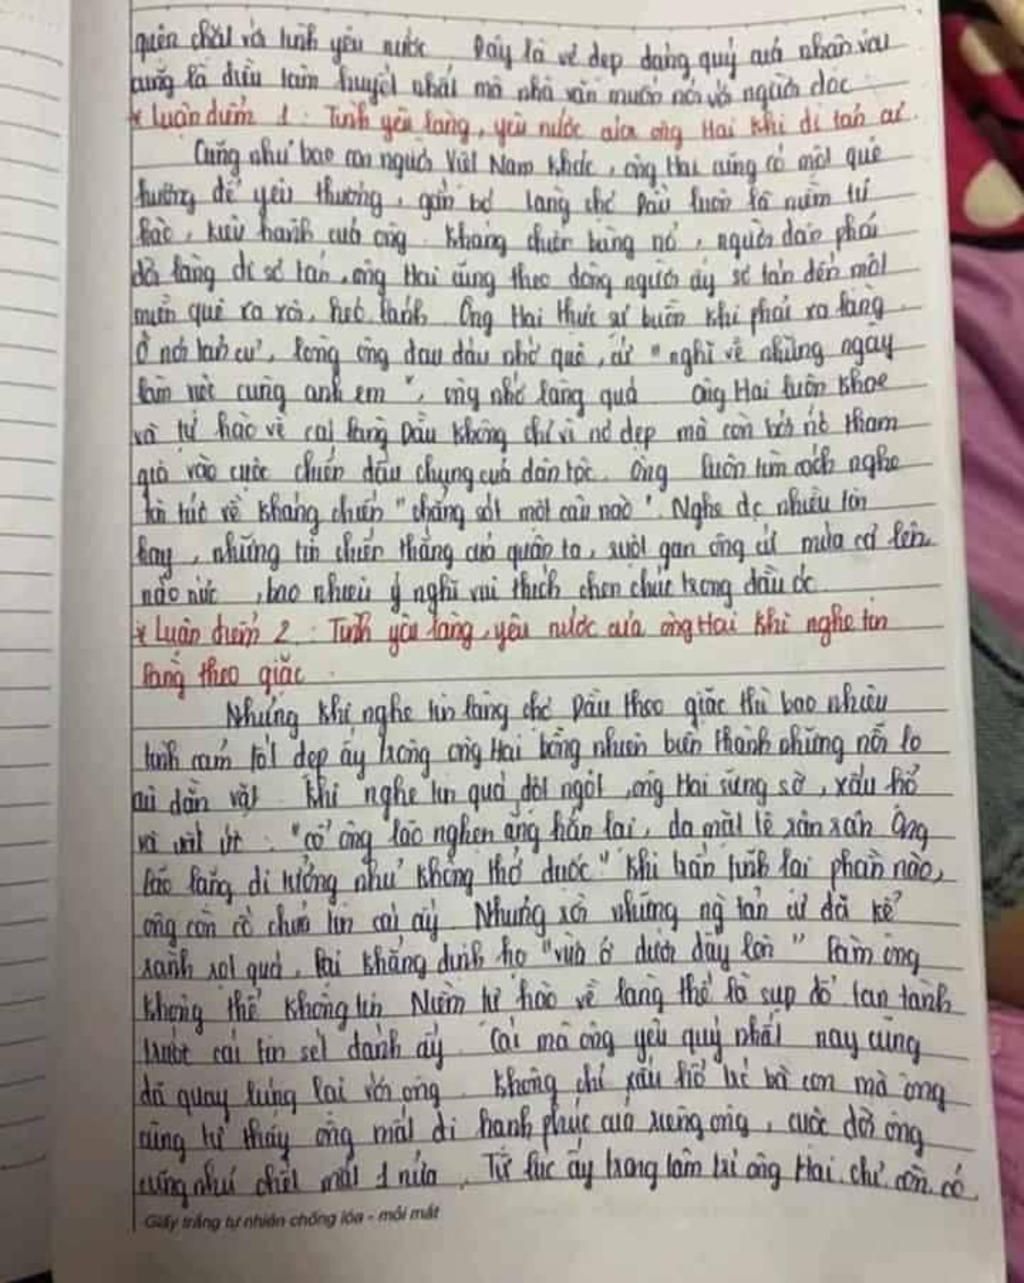 quên chất và tình yêu nước Đây là vẻ đẹp đáng quý của nhân vật
cũng là điều tâm huyết nhất mà nhà văn muốn nói với người đọc
* Luận điểm 1 : Tình yêu làng, yêu nước của ông Hai khi đi tản cư.
Cũng như bao con người Việt Nam khác, ông Hai cũng có một quê
hương để yêu thương, gắn bó làng chợ Dầu luôn là niềm tự
hào, kiêu hãnh của ông. Kháng chiến bùng nổ, người dân phải
dời làng đi sơ tán, ông Hai cũng theo dòng người ấy sơ tán đến một
miền quê xa xôi, hẻo lánh Ông Hai thực sự buồn khi phải xa làng
Ở nơi tản cư, lòng ông đau đáu nhớ quê, cứ "nghĩ về những ngày
làm việc cùng anh em", ông nhớ làng quá Ông Hai luôn khoe
và tự hào về cái làng Dầu không chỉ vì nó đẹp mà còn bởi nó tham
gia vào cuộc chiến đấu chung của dân tộc. Ông luôn tìm cách nghe
tin tức về kháng chiến "chẳng sót một câu nào". Nghe đc nhiều tin
hay, những tin chiến thắng của quân ta, ruột gan ông cứ múa cả lên
náo nức, bao nhiêu ý nghĩ vui thích chen chúc trong đầu óc
* Luận điểm 2 : Tình yêu làng, yêu nước của ông Hai khi nghe tin
làng theo giặc.
Nhưng khi nghe tin làng chợ Dầu theo giặc thì bao nhiêu
tình cảm tốt đẹp ấy trong ông Hai bỗng nhiên biến thành những nỗi lo
âu dằn vặt Khi nghe tin quá đột ngột, ông Hai sững sờ, xấu hổ
và uất ức: "cổ ông lão nghẹn ắng hẳn lại, da mặt tê rân rân Ông
lão lặng đi tưởng như không thở được" Khi trấn tĩnh lại phần nào,
ông còn cố chưa tin cái ấy Nhưng rồi những ng tản cư đã kể
rành rọt quá, lại khẳng định họ "vừa ở dưới ấy lên" làm ông
không thể không tin Niềm tự hào về làng thế là sụp đổ tan tành
trước cái tin sét đánh ấy. Cái mà ông yêu quý nhất nay cũng
đã quay lưng lại với ông. Không chỉ xấu hổ trc bà con mà ông
cũng tự thấy ông mất đi hạnh phúc của riêng ông, cuộc đời ông
cũng như chết mất 1 nửa. Từ lúc ấy trong tâm trí ông Hai chỉ còn có
Giấy trắng tự nhiên chống lóa - mỏi mắt